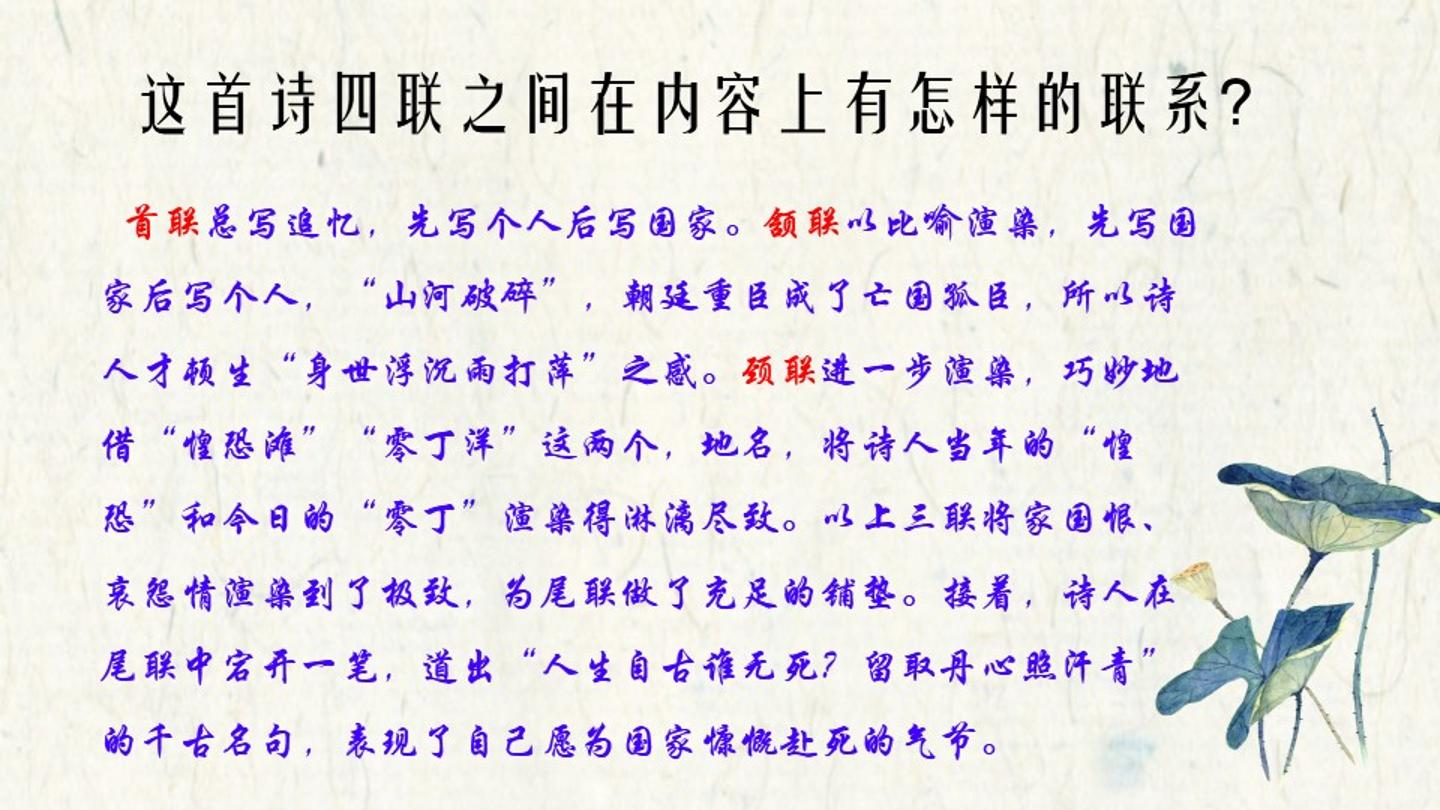 这首诗四联之间在内容上有怎样的联系?
首联总写追忆，先写个人后写国家。颔联以比喻渲染，先写国
家后写个人，“山河破碎”，朝廷重臣成了亡国孤臣，所以诗
人才顿生“身世浮沉雨打萍”之感。颈联进一步渲染，巧妙地
借“惶恐滩”“零丁洋”这两个，地名，将诗人当年的“惶
恐”和今日的“零丁”渲染得淋漓尽致。以上三联将家国恨、
哀怨情渲染到了极致，为尾联做了充足的铺垫。接着，诗人在
尾联中宕开一笔，道出“人生自古谁无死？留取丹心照汗青”
的千古名句，表现了自己愿为国家慷慨赴死的气节。